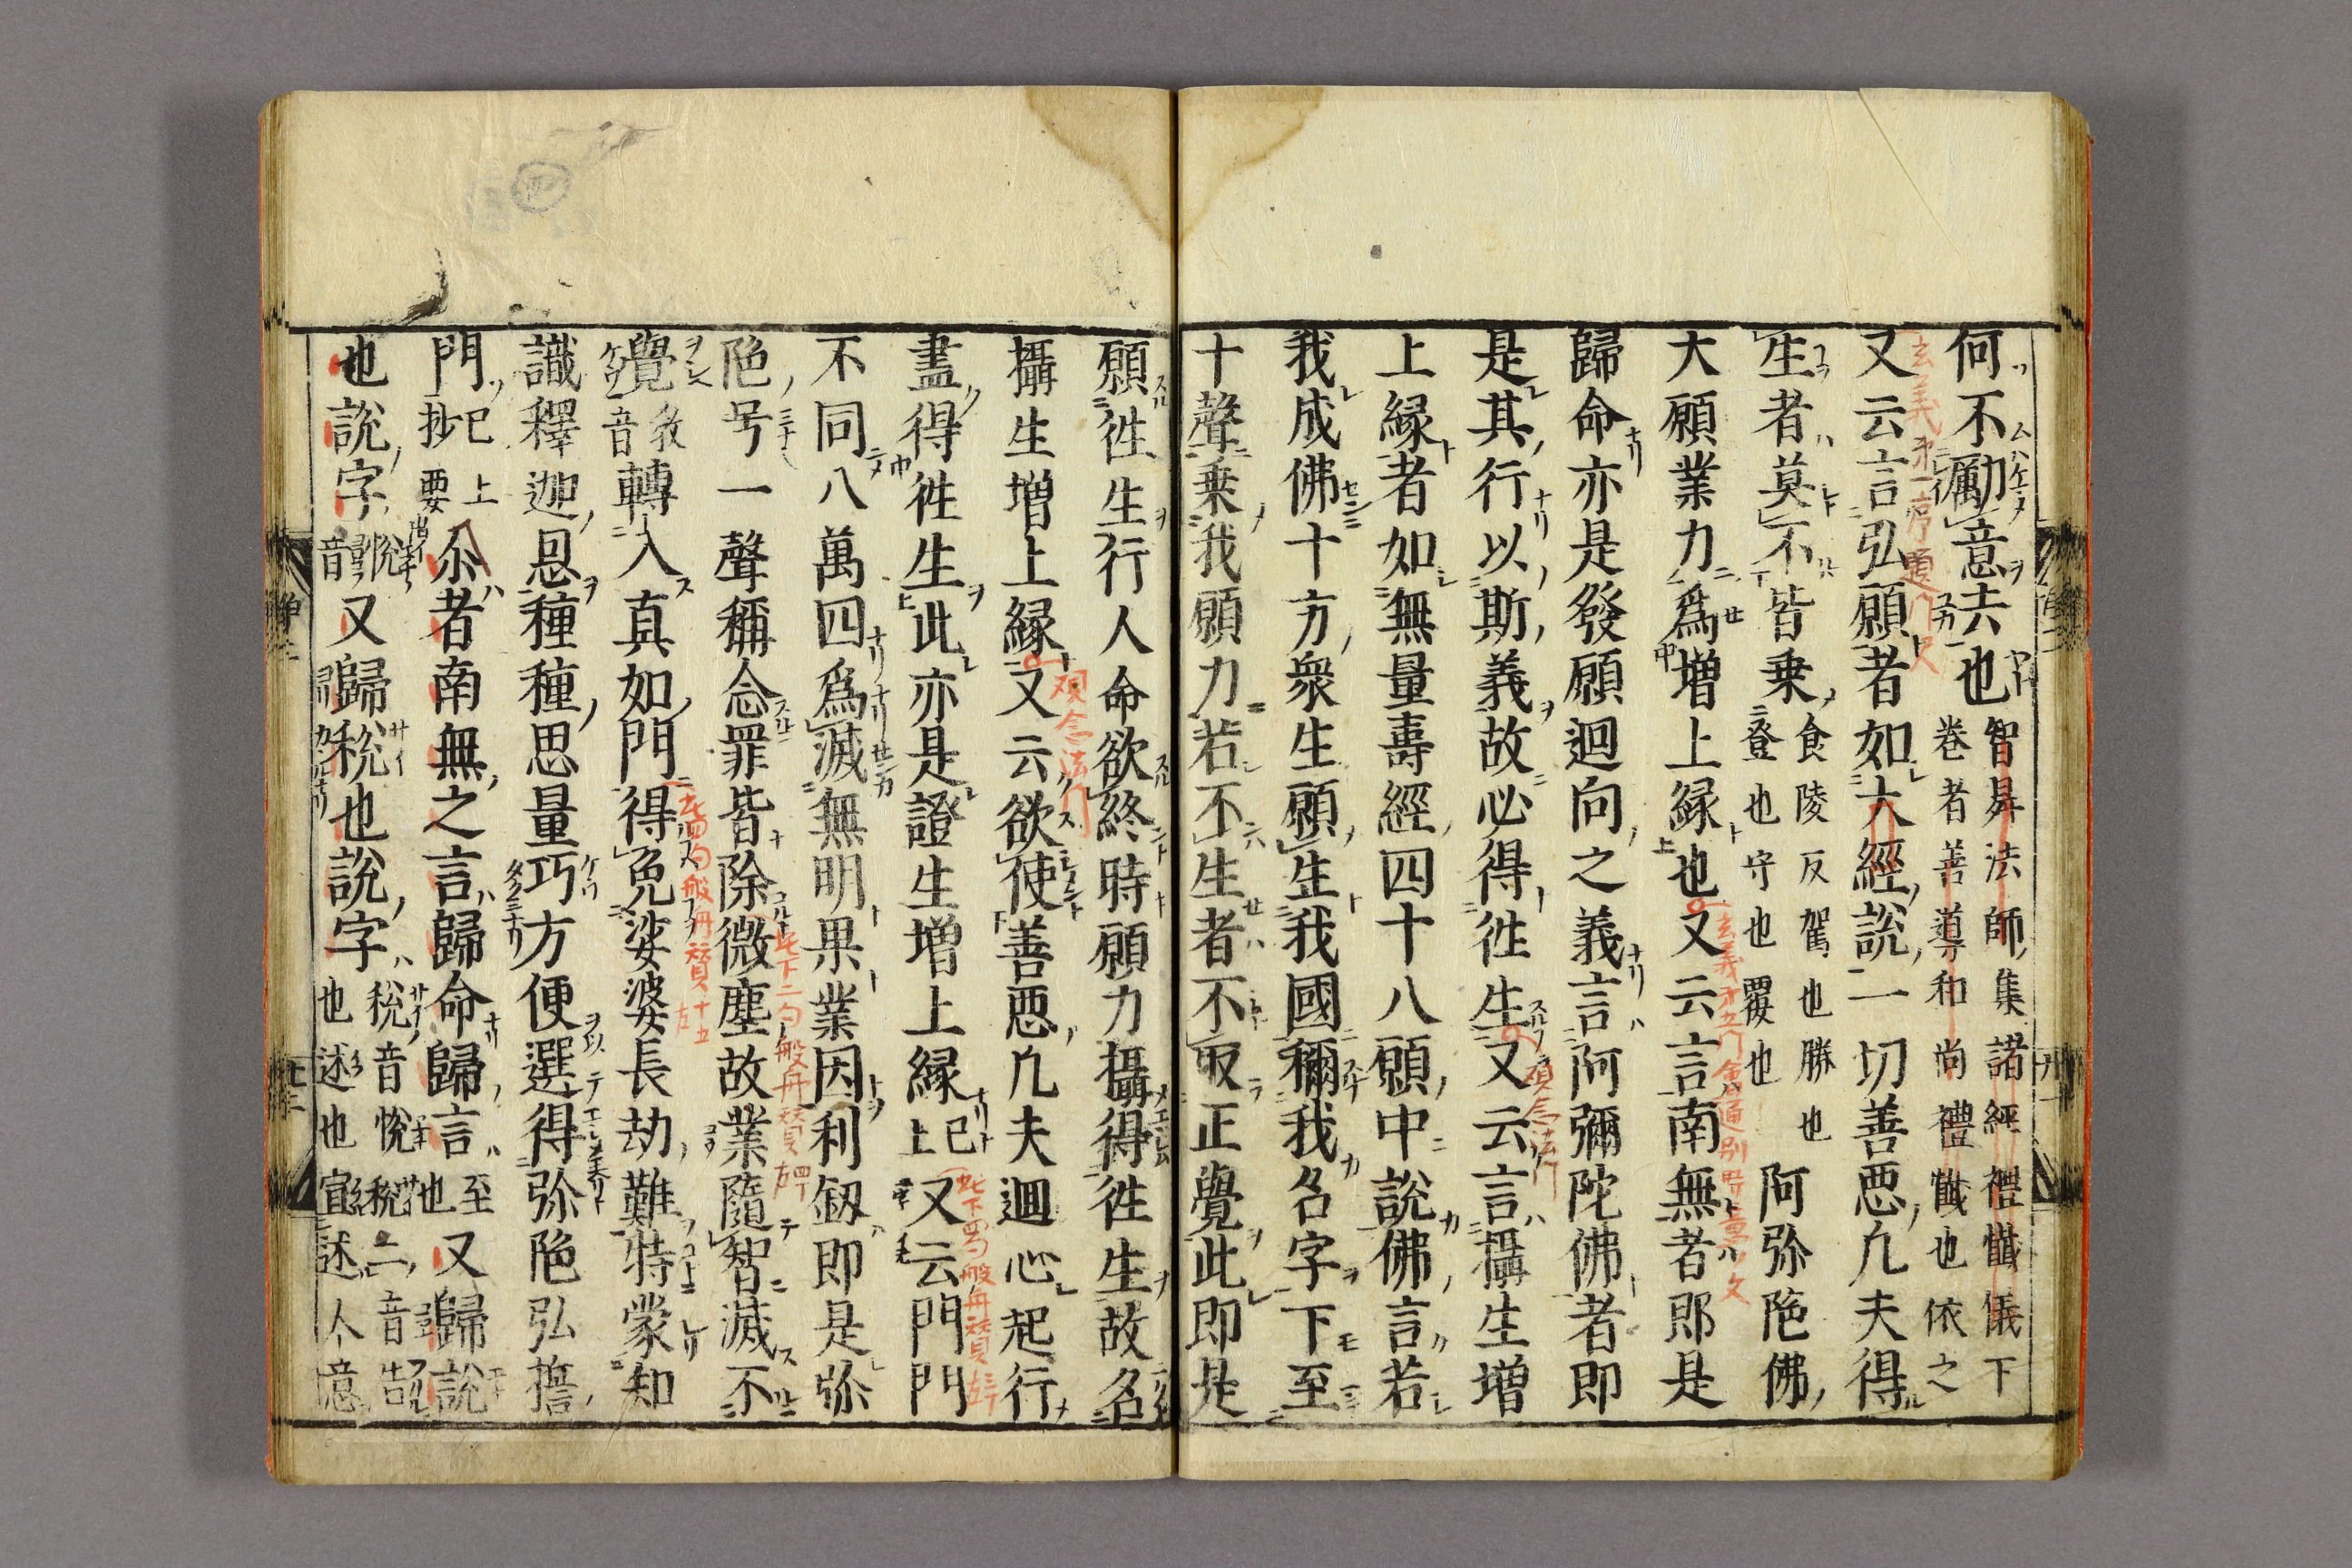 何不勵意去也智昇法師集諸經禮懺儀下
卷者善導和尚禮懺也依之
又云言弘願者如大經說一切善惡凡夫得
生者莫不皆乗食陵反駕也勝也
登也守也覆也阿弥陁佛
大願業力爲增上縁也又云言南無者即是
歸命亦是發願迴向之義言阿彌陀佛者即
是其行以斯義故必得徃生又云言攝生增
上縁者如無量壽經四十八願中說佛言若
我成佛十方衆生願生我國稱我名字下至
十聲乗我願力若不生者不取正覺此即是
願徃生行人命欲終時願力攝得徃生故名
攝生増上縁又云欲使善惡凡夫迴心起行
盡得徃生此亦是證生増上縁已上又云門門
不同八萬四爲滅無明果業因利釼即是弥
陁号一聲稱念罪皆除微塵故業隨智滅不
覺教音轉入真如門得免娑婆長劫難特蒙知
識釋迦恩種種思量巧方便選得弥陁弘誓
門已上抄要尒者南無之言歸命歸言至也又歸說
也說字悅音又歸稅也說字稅音悅稅二音告
也述也宣述人意